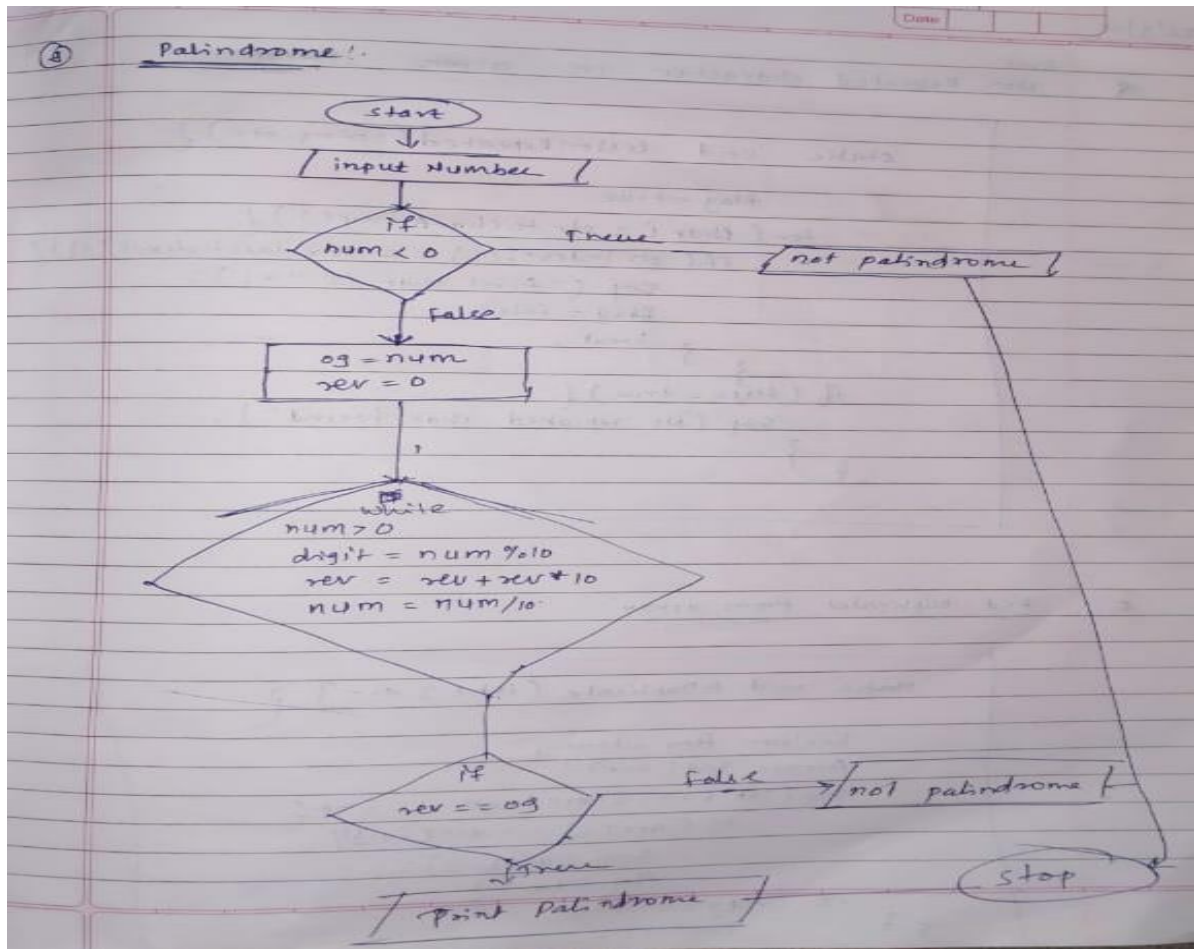 Date
Palindrome :.
start
input Number
if
num < 0
True
not palindrome
False
og = num
rev = 0
while
num > 0
digit = num % 10
rev = rev + rev * 10
num = num / 10
if
rev == og
False
not palindrome
True
stop
print Palindrome